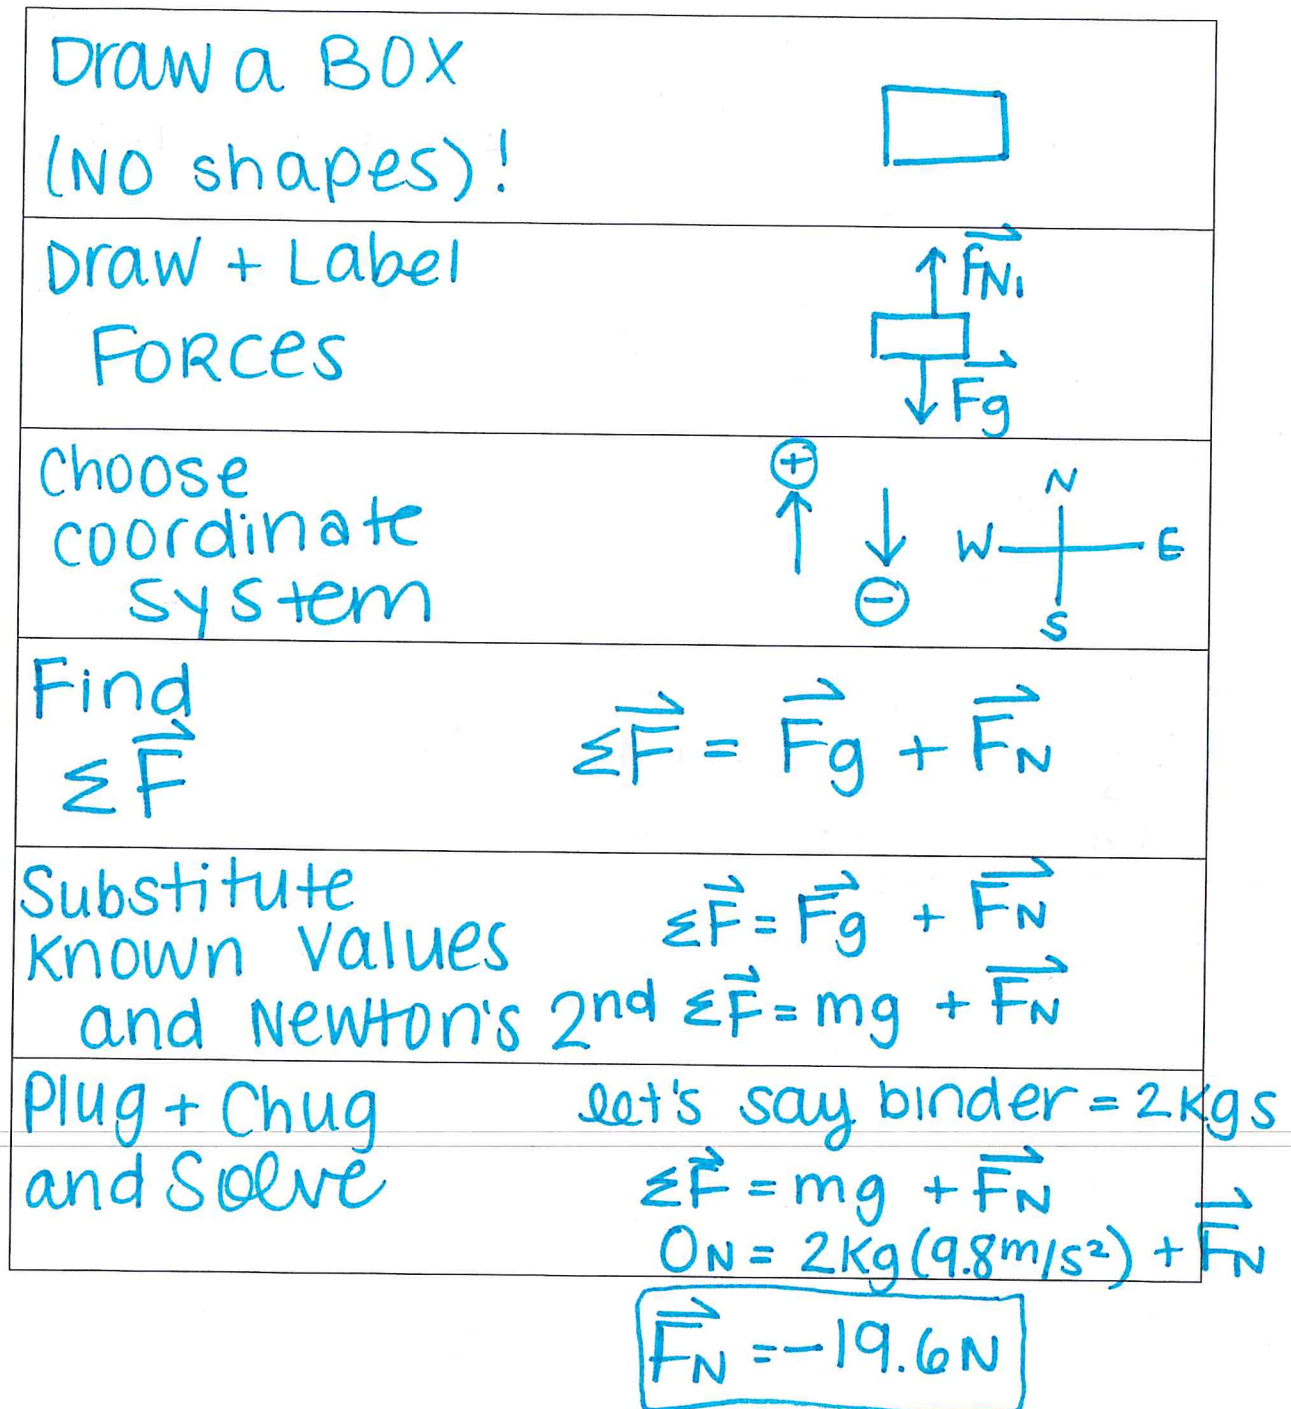 Draw a BOX
(NO shapes)!
Draw + Label
FORCES
→FN₁
→Fg
Choose
coordinate
system
+
−
N
W E
S
Find
Σ→F
Σ→F = →Fg + →FN
Substitute
Known Values
and Newton's 2nd
Σ→F = →Fg + →FN
Σ→F = mg + →FN
Plug + Chug
and Solve
let's say binder = 2kgs
Σ→F = mg + →FN
0N = 2kg(9.8m/s²) + →FN
→FN = -19.6N